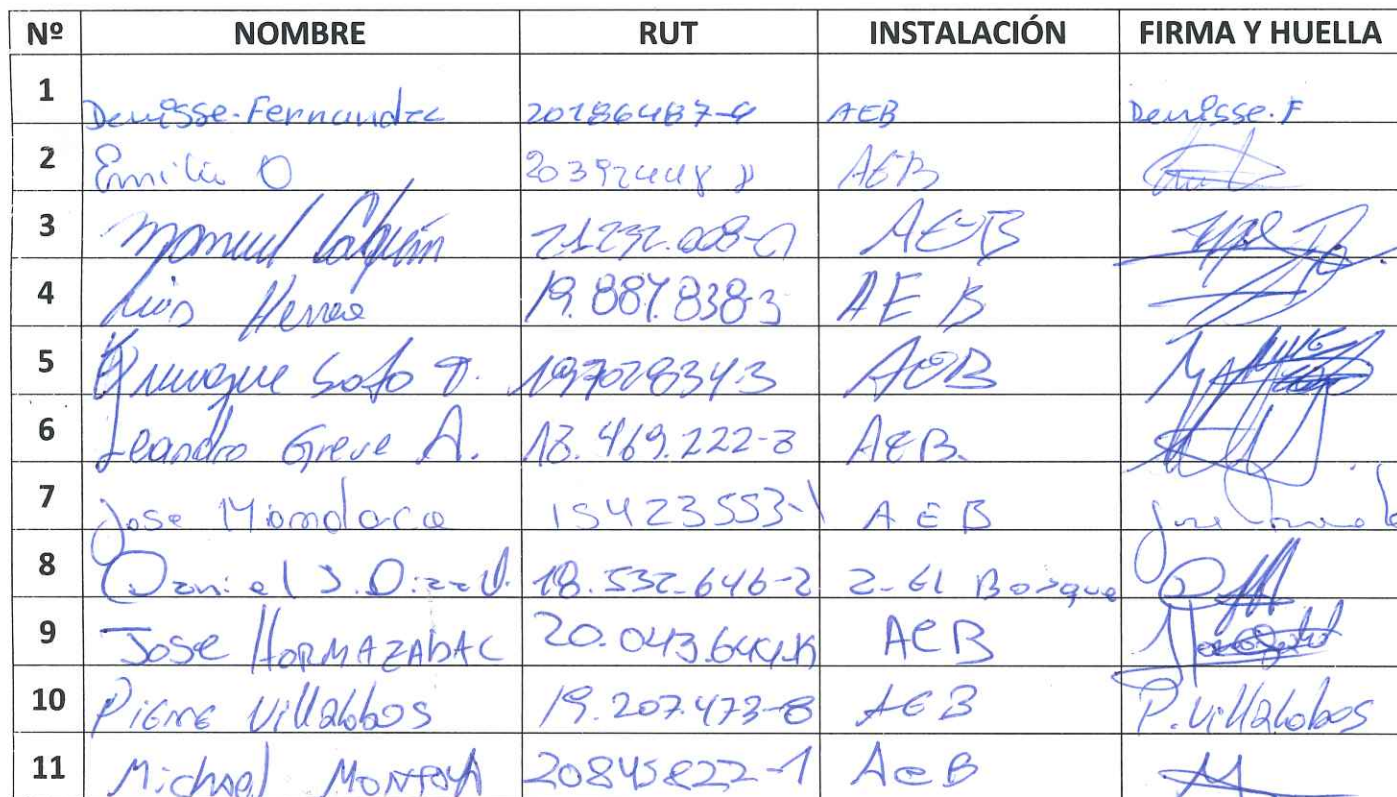 Nº NOMBRE RUT INSTALACIÓN FIRMA Y HUELLA
1 Denisse-Fernandez 20186487-4 AEB Denisse.F
2 Emilia O AEB
3 Manuel 21.292.008-0 AEB
4 Luis Herrera 19.887.838-3 AEB
5 Soto T. 19702834-3 AEB
6 Leandro Greve A. 18.469.222-8 AEB.
7 Jose Mondaca 15423553-1 AEB
8 Daniel J. Diaz V. 18.532.646-2 2-El Bosque
9 Jose HORMAZABAL 20.043.644-K AEB
10 Pierre Villalobos 19.207.473-8 AEB P. Villalobos
11 Michael MONTOYA 20845822-1 AEB